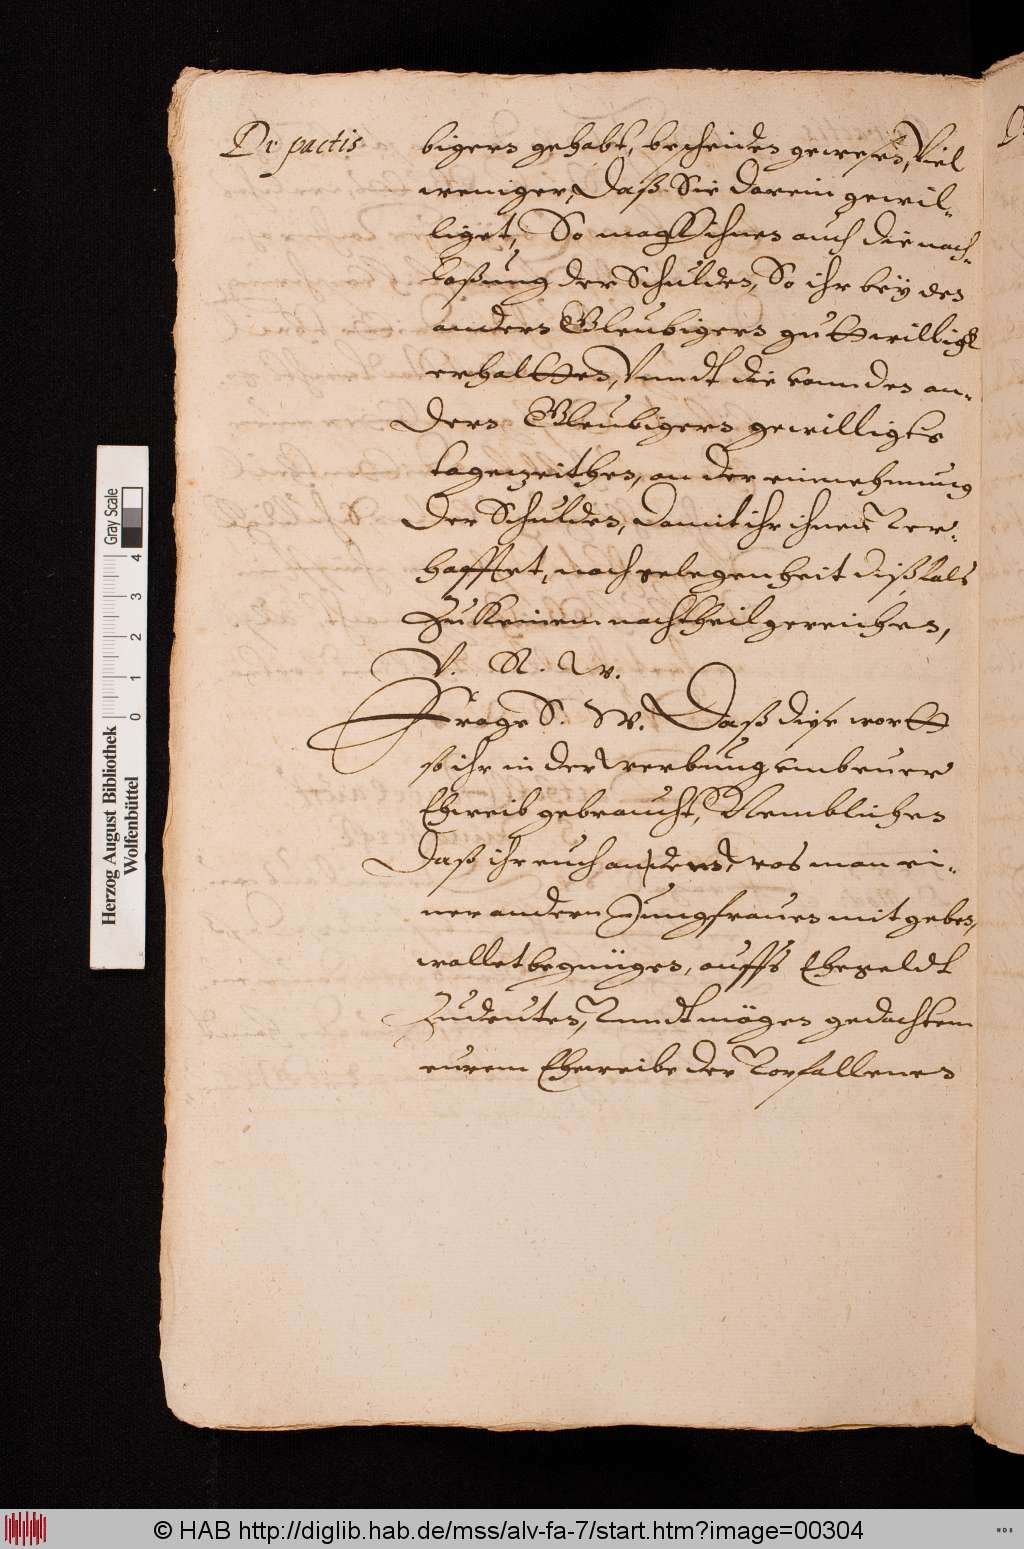 De pactis
bigern gehabt, bescheiden gewesen, Viel
weniger, Daß Sie darein gewil-
liget, So mag Ihnen auch die nach-
laßung der Schulden, So ihr bey den
andern Gleubigern guttwilligk
erhaltten, Vnndt die von den an-
dern Gleubigern gewilligte
tagezeithen, an der einnehmung
der Schulden, damit ihr ihnen Ver-
hafftet, nach gelegenheit dißfals
zu keinem nachtheil gereichen,
V. R. W.
Frage S. W. Daß diese wortt
so ihr in der werbung vmb euer
Eheweib gebraucht, Nemblichen
Daß ihr euch an dem, was man ei-
ner andern Jungfrauen mitgeben,
wollet begnügen, auffs Ehegeldt
Zudeuten, Vnndt mögen gedachtem
eurem Eheweibe der Vorfallenen
Herzog August Bibliothek
Wolfenbüttel
0 1 2 3 4
Gray Scale
© HAB http://diglib.hab.de/mss/alv-fa-7/start.htm?image=00304